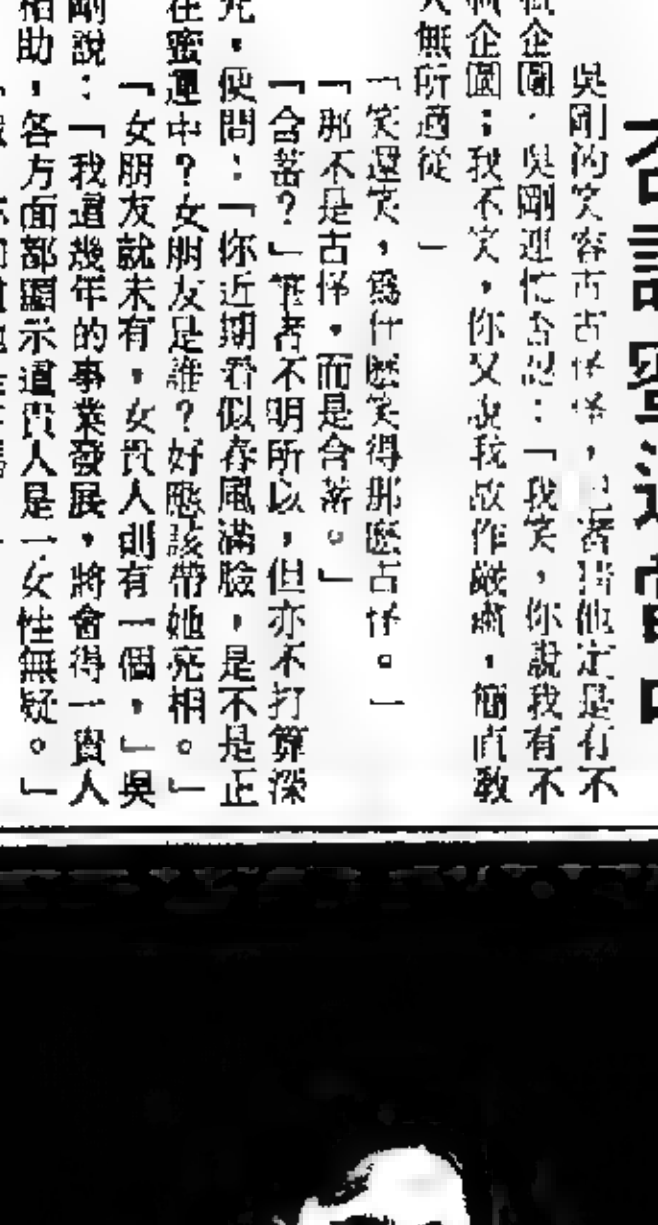 吳剛的笑容古古怪怪，記者猜他定是有不
軌企圖，吳剛連忙否認：「我笑，你說我有不
軌企圖；我不笑，你又說我故作嚴肅，簡直教
人無所適從」
「笑還笑，爲什麽笑得那麽古怪。」
「那不是古怪，而是含蓄。」
「含蓄？」筆者不明所以，但亦不打算深
究，便問：「你近期看似春風滿臉，是不是正
在蜜運中？女朋友是誰？好應該帶她亮相。」
「女朋友就未有，女貴人則有一個，」吳
剛說：「我這幾年的事業發展，將會得一貴人
相助，各方面都顯示這貴人是一女性無疑。」